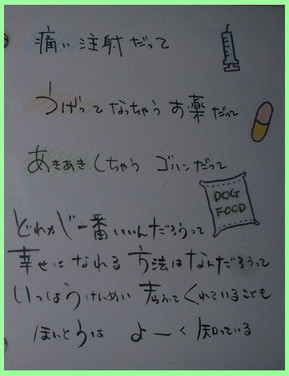 痛い注射だって
うげってなっちゃうお薬だって
あきあきしちゃうゴハンだって
DOG
FOOD
どれが一番いいんだろうって
幸せになれる方法はなんだろうって
いっしょうけんめい考えてくれていることも
ほんとうは よーく知っている